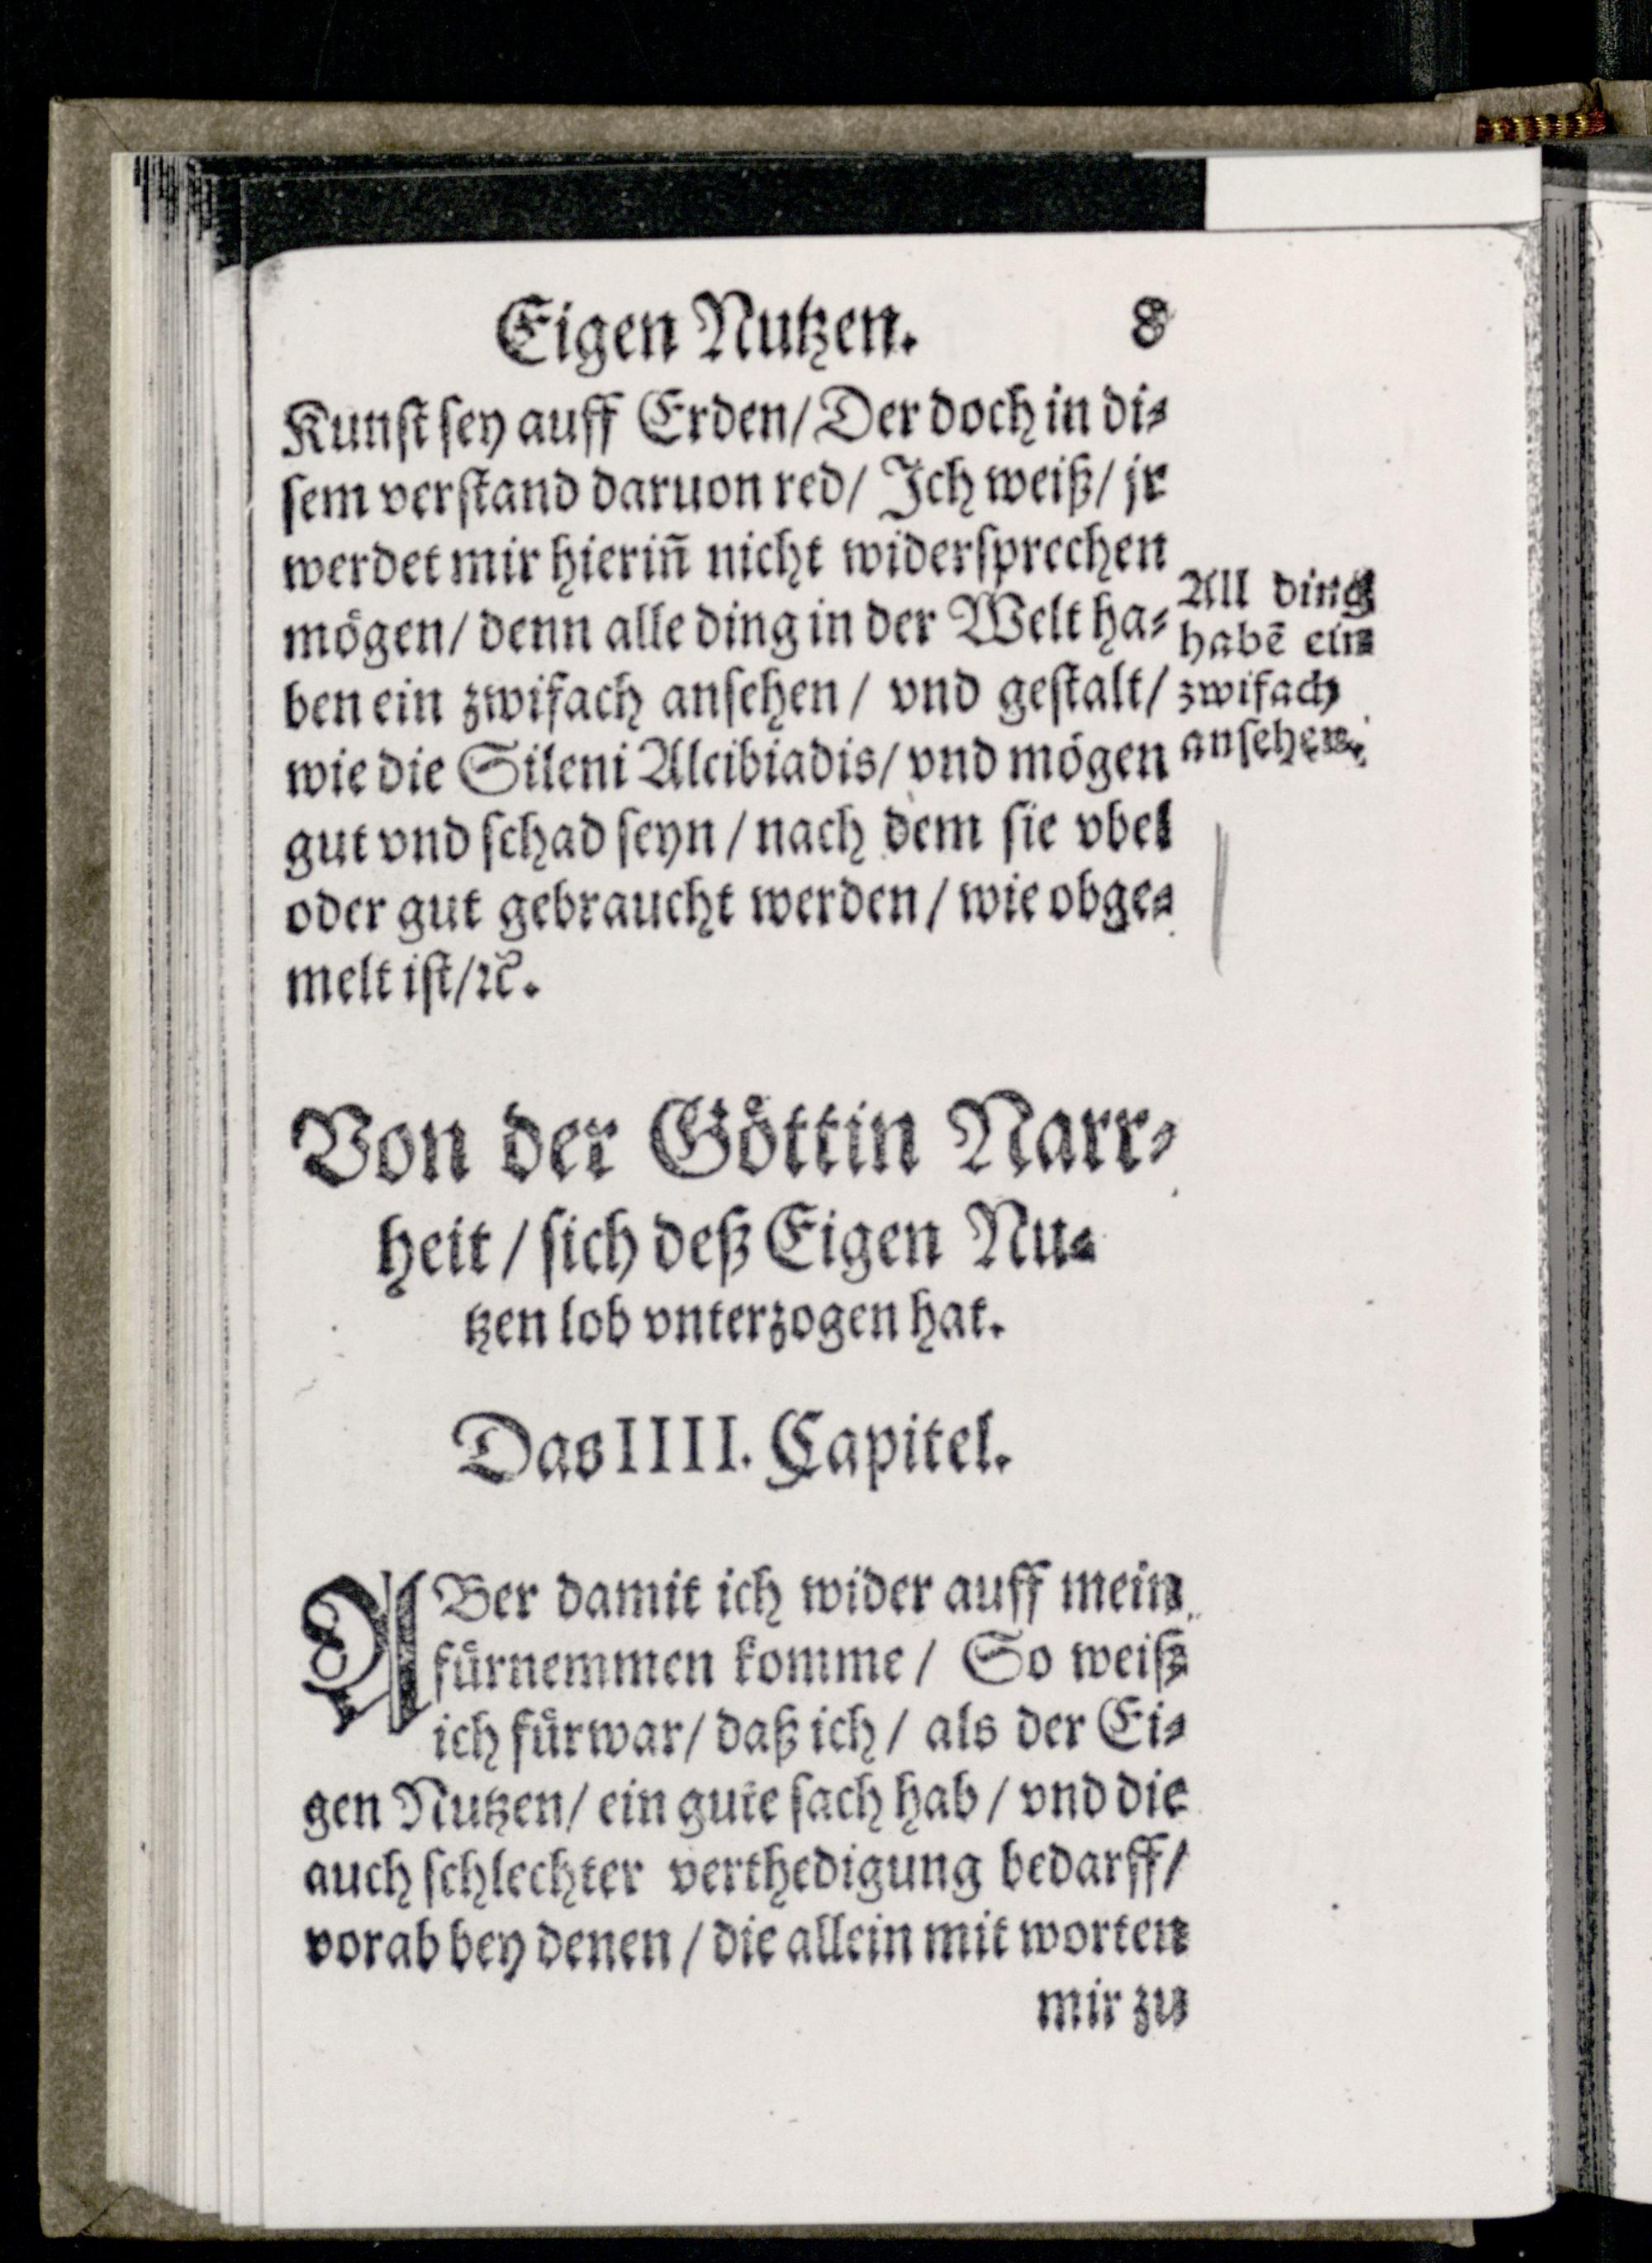 Eigen Nutzen. 8
Kunſt ſey auff Erden/ Der doch in di⸗
ſem verſtand daruon red/ Jch weiß/ jr
werdet mir hieriñ nicht widerſprechen
moͤgen/ denn alle ding in der Welt ha⸗
ben ein zwifach anſehen/ vnd geſtalt/
wie die Sileni Alcibiadis/ vnd moͤgen
gut vnd ſchad ſeyn/ nach dem ſie vbel
oder gut gebraucht werden/ wie obge⸗
melt iſt/ ꝛc̃.
All ding
habẽ ein
zwifach
anſehen.
Von der Goͤttin Narr⸗
heit/ ſich deß Eigen Nu⸗
tzen lob vnterzogen hat.
Das IIII. Capitel.
ABer damit ich wider auff mein
fuͤrnemmen komme/ So weiß
ich fuͤrwar/ daß ich/ als der Ei⸗
gen Nutzen/ ein gute ſach hab/ vnd die
auch ſchlechter verthedigung bedarff/
vorab bey denen/ die allein mit worten
mir zu